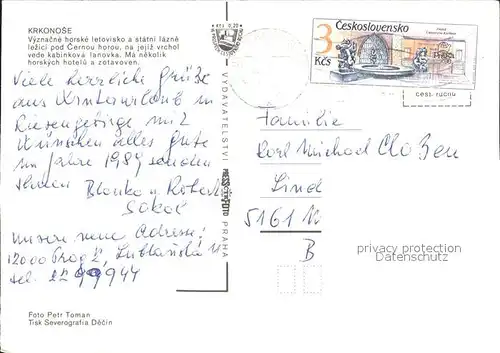 KRKONOŠE
Význačné horské letovisko a státní lázně
ležící pod Černou horou, na jejíž vrchol
vede kabinková lanovka. Má několik
horských hotelů a zotavoven.
Viele herzliche Grüße
aus Winterurlaub in
Riesengebirge mit
Wünschen alles Gute
im Jahre 1989 senden
Ihnen Blanka u. Robert
Sokol
Unsere neue Adresse:
12000 Prag 2, Lublaňská
tel. 22 99 944
Foto Petr Toman
Tisk Severografia Děčín
VYDAVATELSTVÍ PRESSFOTO PRAHA
Kčs 0,20
3
Kčs
Československo
Familie
Karl Michael Cloßen
Lind
5161 N
B
privacy protection
Datenschutz